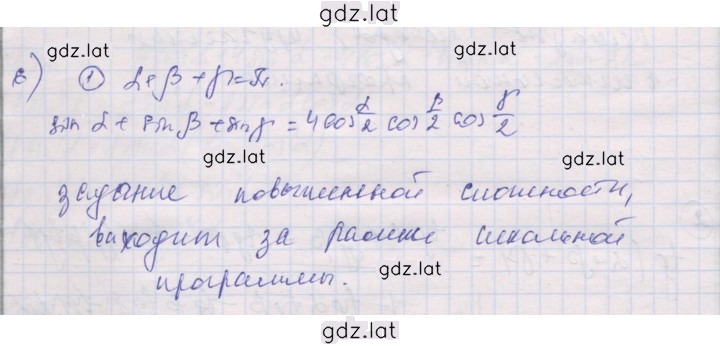 gdz.lat
gdz.lat
в) ① α+β+γ=π.
gdz.lat
sin α + sin β + sin γ = 4 cos α/2 cos β/2 cos γ/2
gdz.lat
gdz.lat
задание повышенной сложности,
выходит за рамки школьной
программы.
gdz.lat
gdz.lat